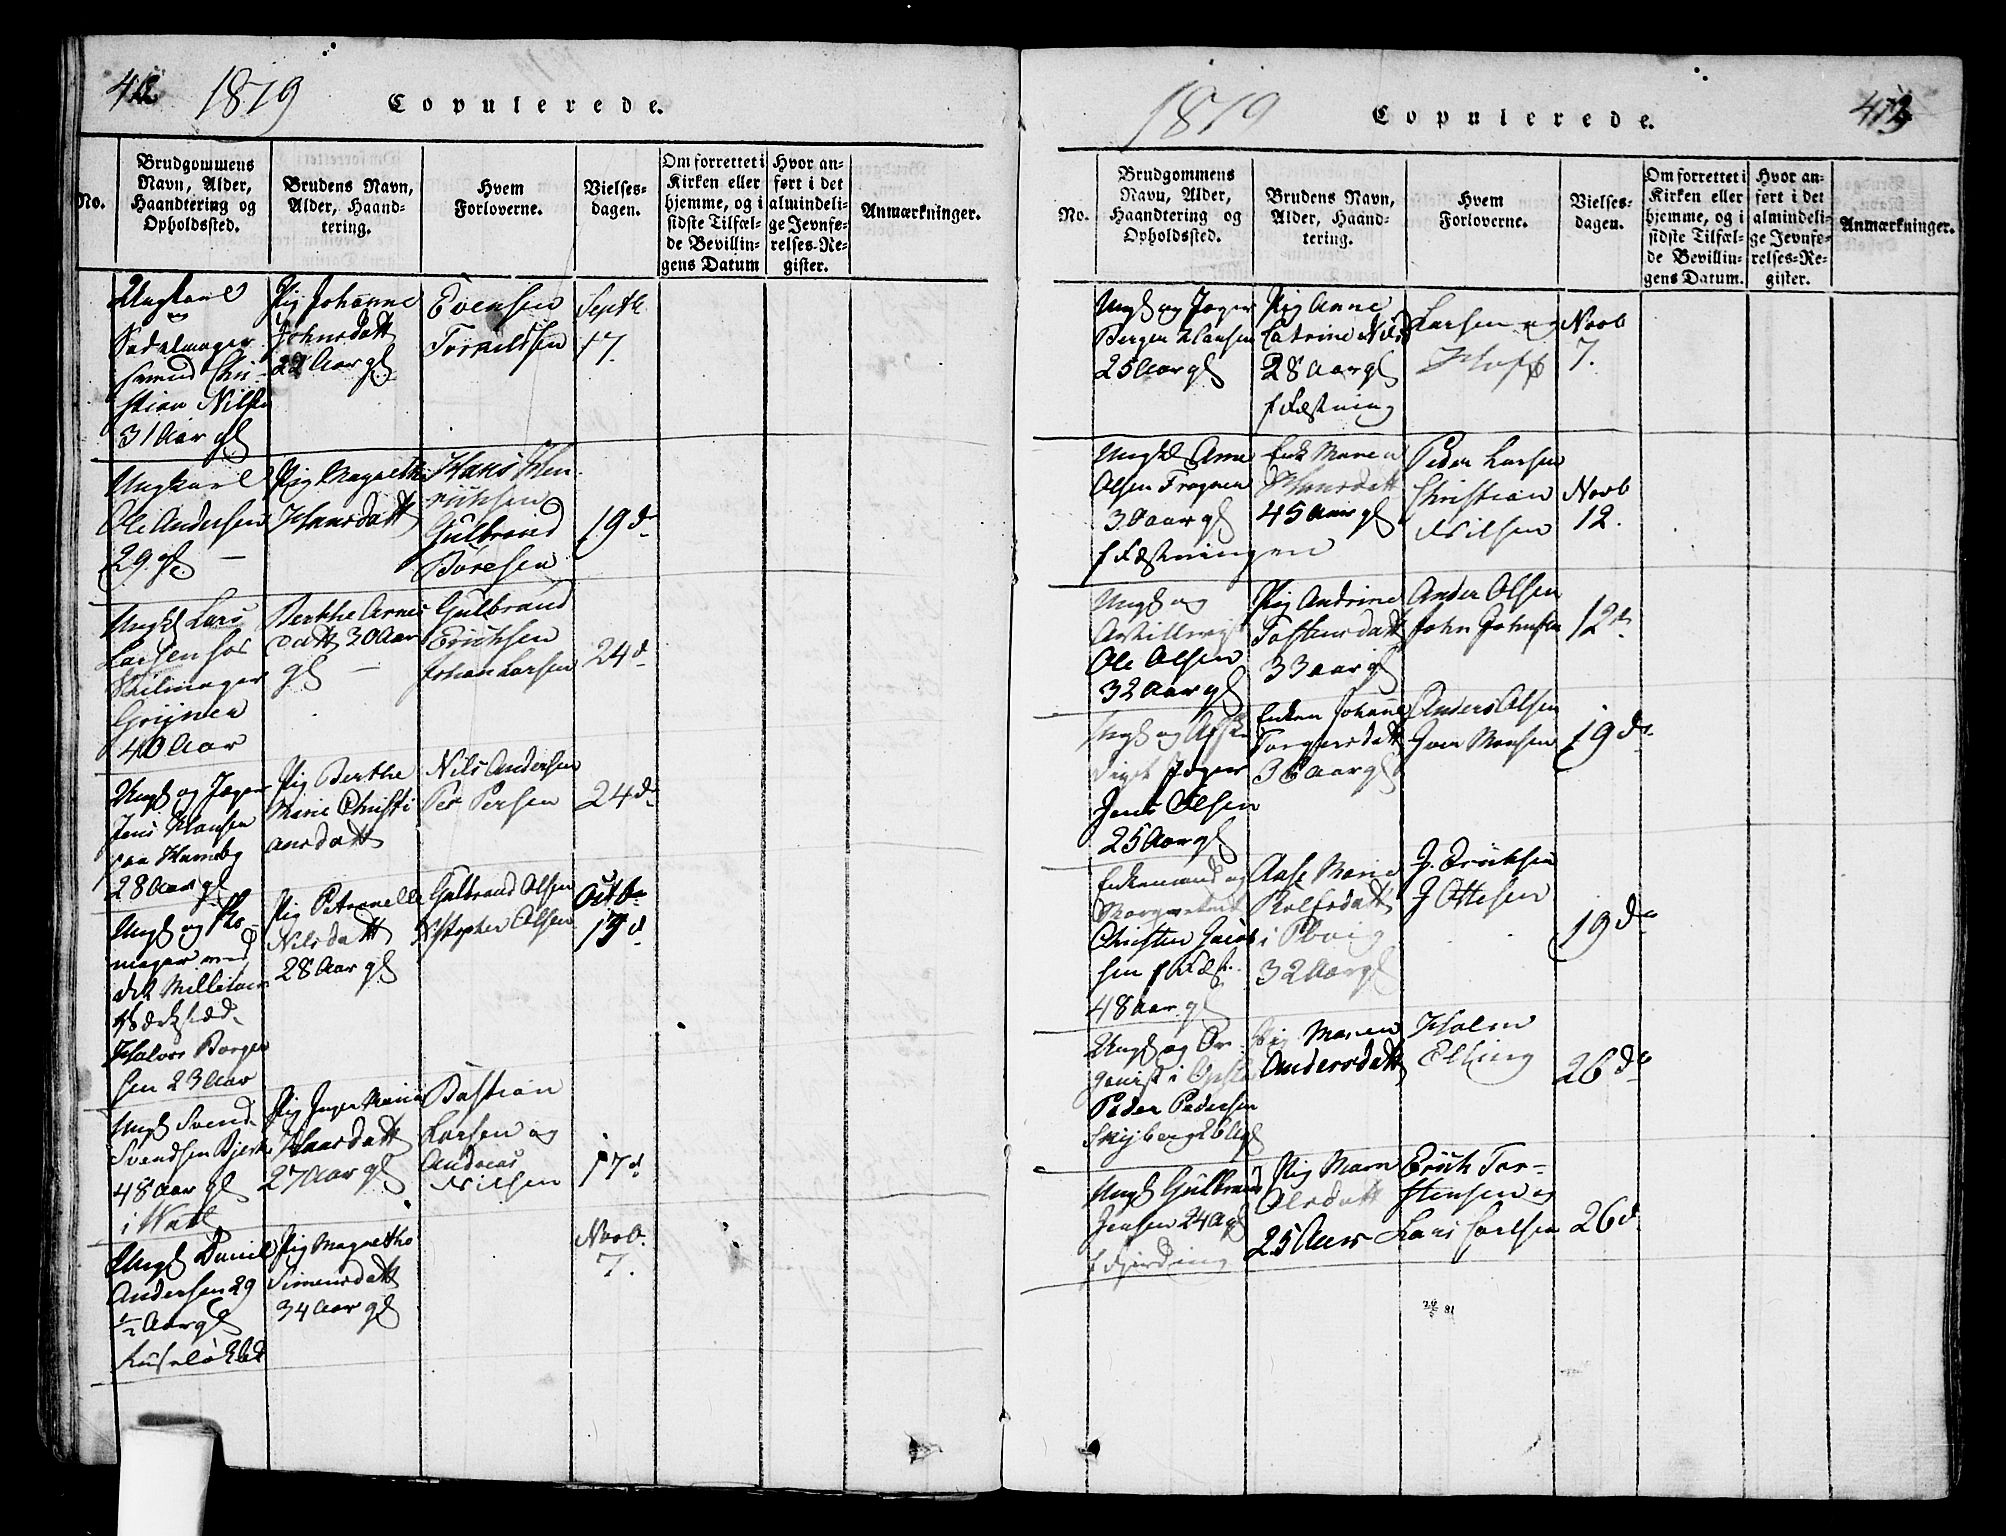 412 1819 Copulerede.
No.
Brudgommens
Navn, Alder,
Haandtering og
Opholdssted.
Brudens Navn,
Alder, Haand-
tering.
Hvem
Forloverne.
Vielses-
dagen.
Om forrettet i
Kirken eller
hjemme, og i
sidste Tilfæl-
de Bevillin-
gens Datum
Hvor an-
ført i det
almindeli-
ge Jevnfø-
relses-Re-
gister.
Anmærkninger.
Ungkarl
og
Sadelmager
Chri-
stian Nilsen
31 Aar gl
Pig Johanne
Johnsdatt
22 Aar gl
Evensen
Torkildsen
Septb
17.
Ungkarl
Ole Andersen
29 gl. —
Pig Magrethe
Hansdatt
Hans Hen
richsen
Gulbrand
Boresen
19 d
Ungk Lars
Larsen
Grünen
40 Aar
Berthe Arnes
datt 30 Aar
gl —
Gulbrand
Erichsen
Johan Larsen
24 d
Ungk og Jæger
Jens Hansen
paa
28 Aar gl
Pig Berthe
Marie Christi
ansdatt
Nils Andersen
Per Persen
24 d
Ungk og Sko-
mager ved
det
Halvor Borger
sen 23 Aar
Pig Petronelle
Nilsdatt
28 Aar gl
Gulbrand Olsen
Kristopher Olsen
Octbr
15 d
Ungk Svend
Svendsen Bjerke
48 Aar gl
Pig Inger Maria
Hansdatt
27 Aar gl
Bastian
Larsen og
Andreas
Nilsen
17 d
Ungk Daniel
Andersen 29
½ Aar gl
Pig Magrethe
Simensdatt
34 Aar gl
Novb.
7.
1819 Copulerede. 413
No.
Brudgommens
Navn, Alder,
Haandtering og
Opholdssted.
Brudens Navn,
Alder, Haand-
tering.
Hvem
Forloverne.
Vielses-
dagen.
Om forrettet i
Kirken eller
hjemme, og i
sidste Tilfæl-
de Bevillin-
gens Datum.
Hvor an-
ført i det
almindeli-
ge Jevnfø-
relses-Re-
gister.
Anmærkninger.
Ungk og Jæger
Berger Hansen
25 Aar gl
Pig Anne
Catrine Nilsd
28 Aar gl
f Fæstning
Larsen og
Hoff
Novb
7.
Ungk Arne
Olsen Frognen
30 aar gl
f Fæstningen
Enk Maren
Hansdatt
45 Aar gl
Peder Larsen
Christian
Nilsen
Novb
12.
Ungk og
Artillerist
Ole Olsen
32 Aar gl
Pig Andrine
Tostensdatt
33 aar gl
Ander Olsen
John Johnsen
12 d
Ungk og Afske
diget Jæger
Jens Olsen
25 Aar gl
Enken Johane
Torgersdatt
36 aar gl
Anders Olsen
Iver Monsen
19 d
Enkemand og
Christen Jacob
sen f Fæst.
48 aar gl
Aase Marie
Rolfsdatt
i
32 Aar gl
J. Erichsen
J Ottesen
19 d
Ungk og Or-
ganist i Opslo
Peder Pedersen
26 Agl
Pig Maren
Andersdatt
Holm
Elling
26 d
Ungk Gulbrand
Jensen 24 A gl
Pig Marn
Olsdatt
25 Aar
Erich Tor-
stensen og
Lars Carlsen
26 d
28/5 81